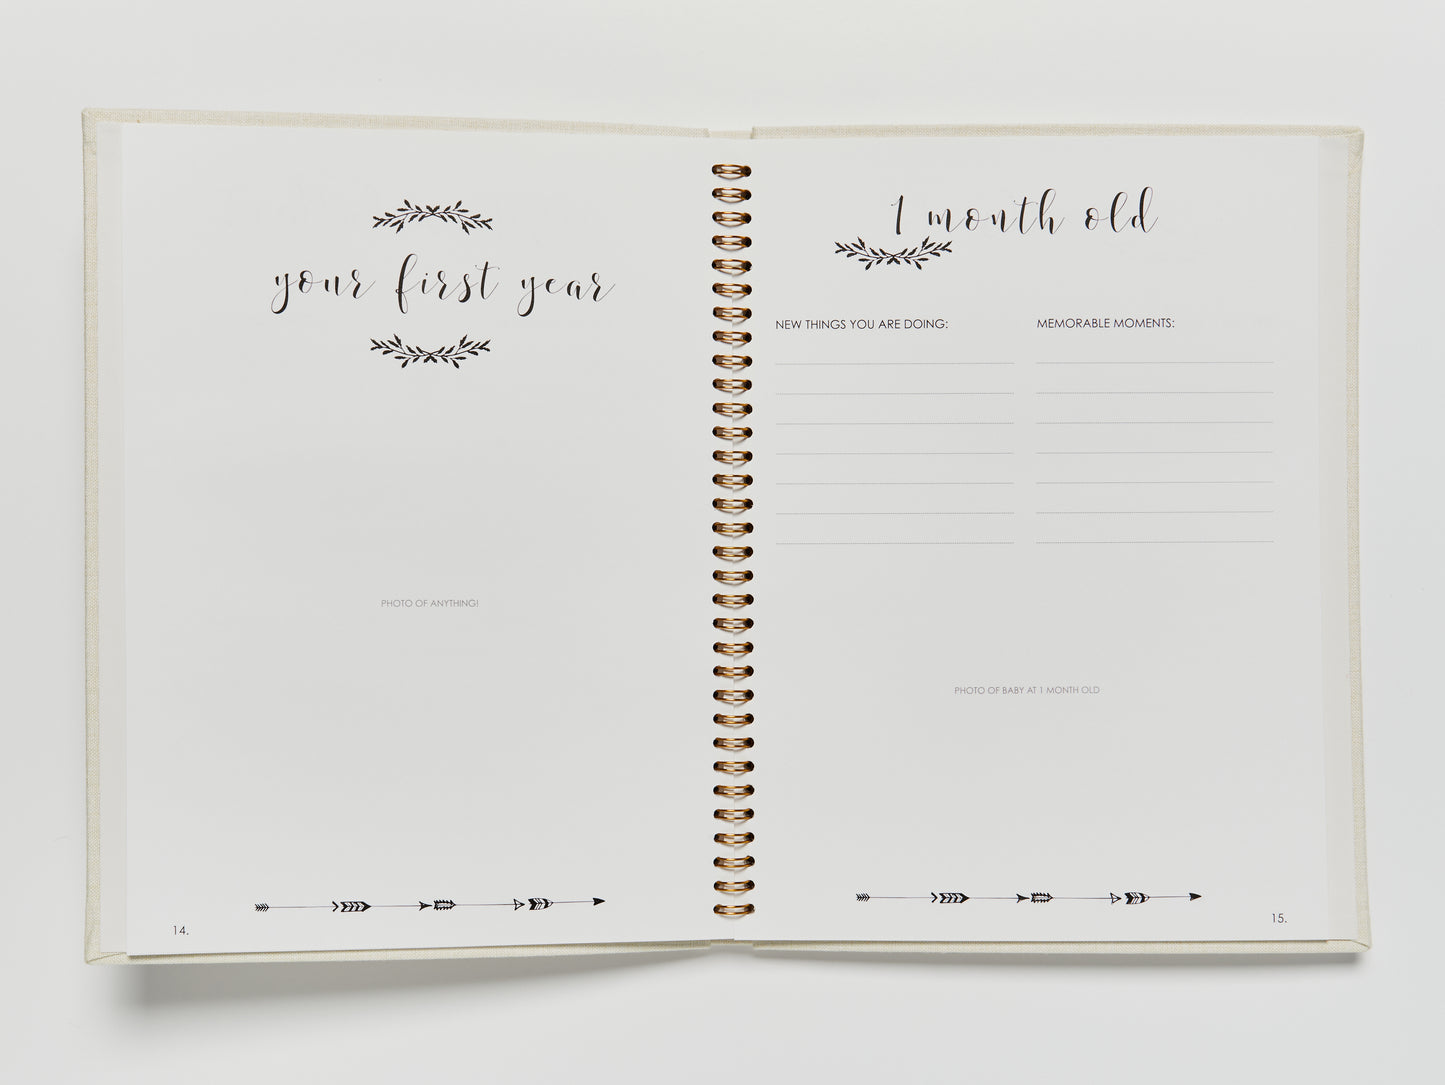 your first year
PHOTO OF ANYTHING!
14.
1 month old
NEW THINGS YOU ARE DOING:
MEMORABLE MOMENTS:
PHOTO OF BABY AT 1 MONTH OLD
15.